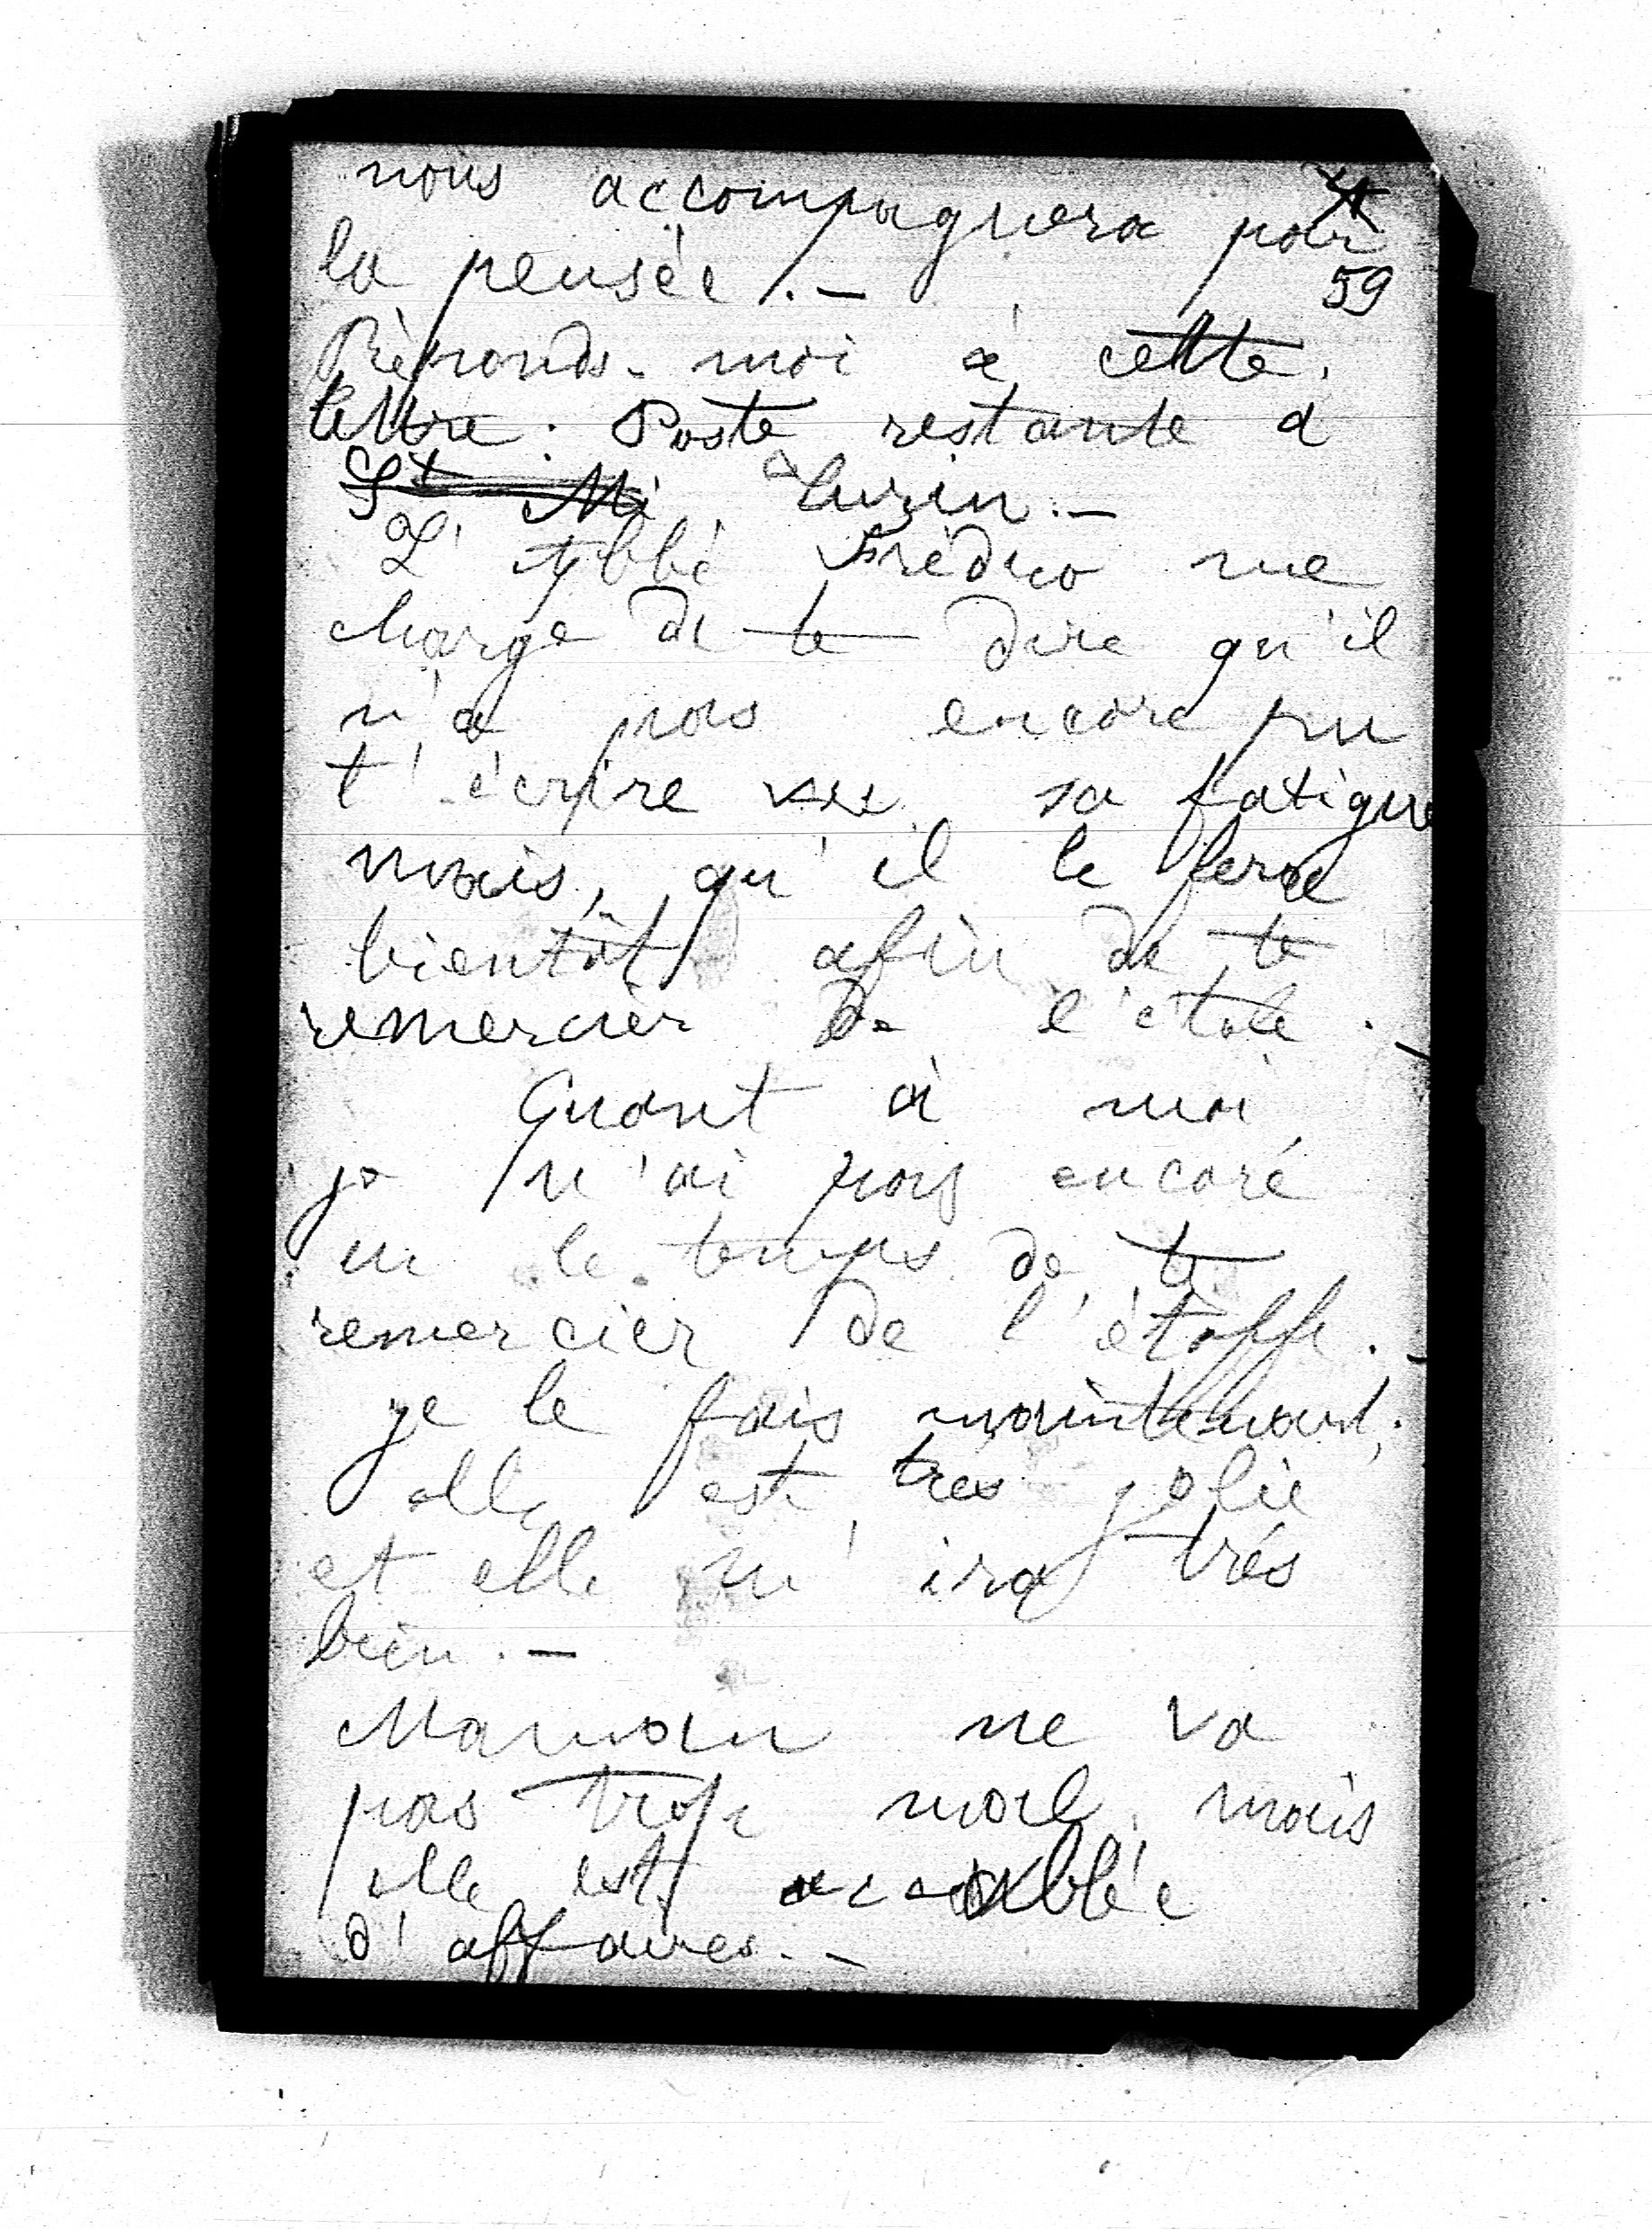 nous accompagnera par
la pensée. -
59
Réponds-moi à cette
lettre : Poste restante à
St Mi à Turin. -
L'Abbé Frédéro me
charge de te dire qu'il
n'a pas encore pu
t'écrire vu sa fatigue
mais, qu'il le fera
bientôt afin de te
remercier de l'étole. -
Quant à moi
je n'ai pas encore
eu le temps de te
remercier de l'étoffe. -
je le fais maintenant;
elle est très jolie
et elle m'ira très
bien. -
Maman ne va
pas trop mal, mais
elle est accablée
d'affaires. -